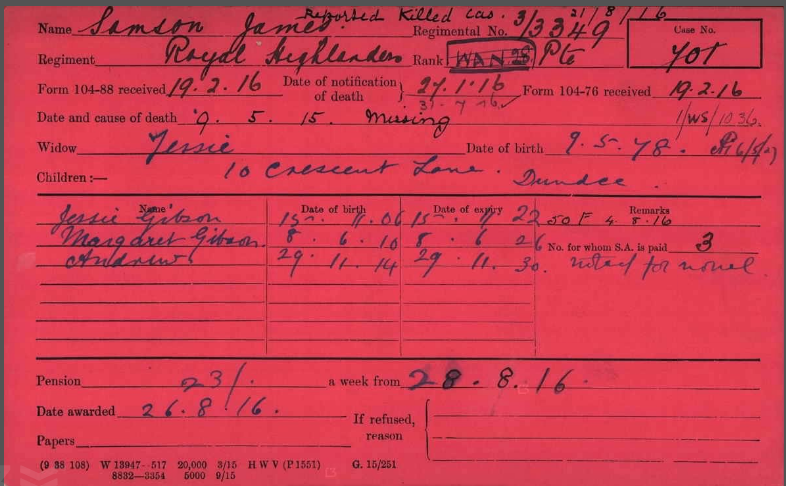 Reported Killed Cas. 21/8/16
Name Samson James. Regimental No. 3/3349 Case No.
Regiment Royal Highlanders Rank WAN 25 Pte 701
Form 104-88 received 19.2.16 Date of notification of death } 27.1.16 Form 104-76 received 19.2.16
31.7.16
Date and cause of death 9. 5. 15. Missing 1/WS/10.36.
Widow Jessie Date of birth 9.5.78.
Children:— 10 Crescent Lane. Dundee.
Name Date of birth Date of expiry Remarks
Jessie Gibson 15. 11. 06 15. 11. 22 50 F 4. 8.16
Margaret Gibson. 8. 6. 10 8. 6. 26 No. for whom S.A. is paid 3
Andrew. 29. 11. 14 29. 11. 30. noted for novel.
Pension 23/. a week from 28. 8.16.
Date awarded 26.8.16. If refused, reason
Papers
(9 38 108) W 13947—517 20,000 3/15 H W V (P 1551) G. 15/251
8832—3354 5000 9/15